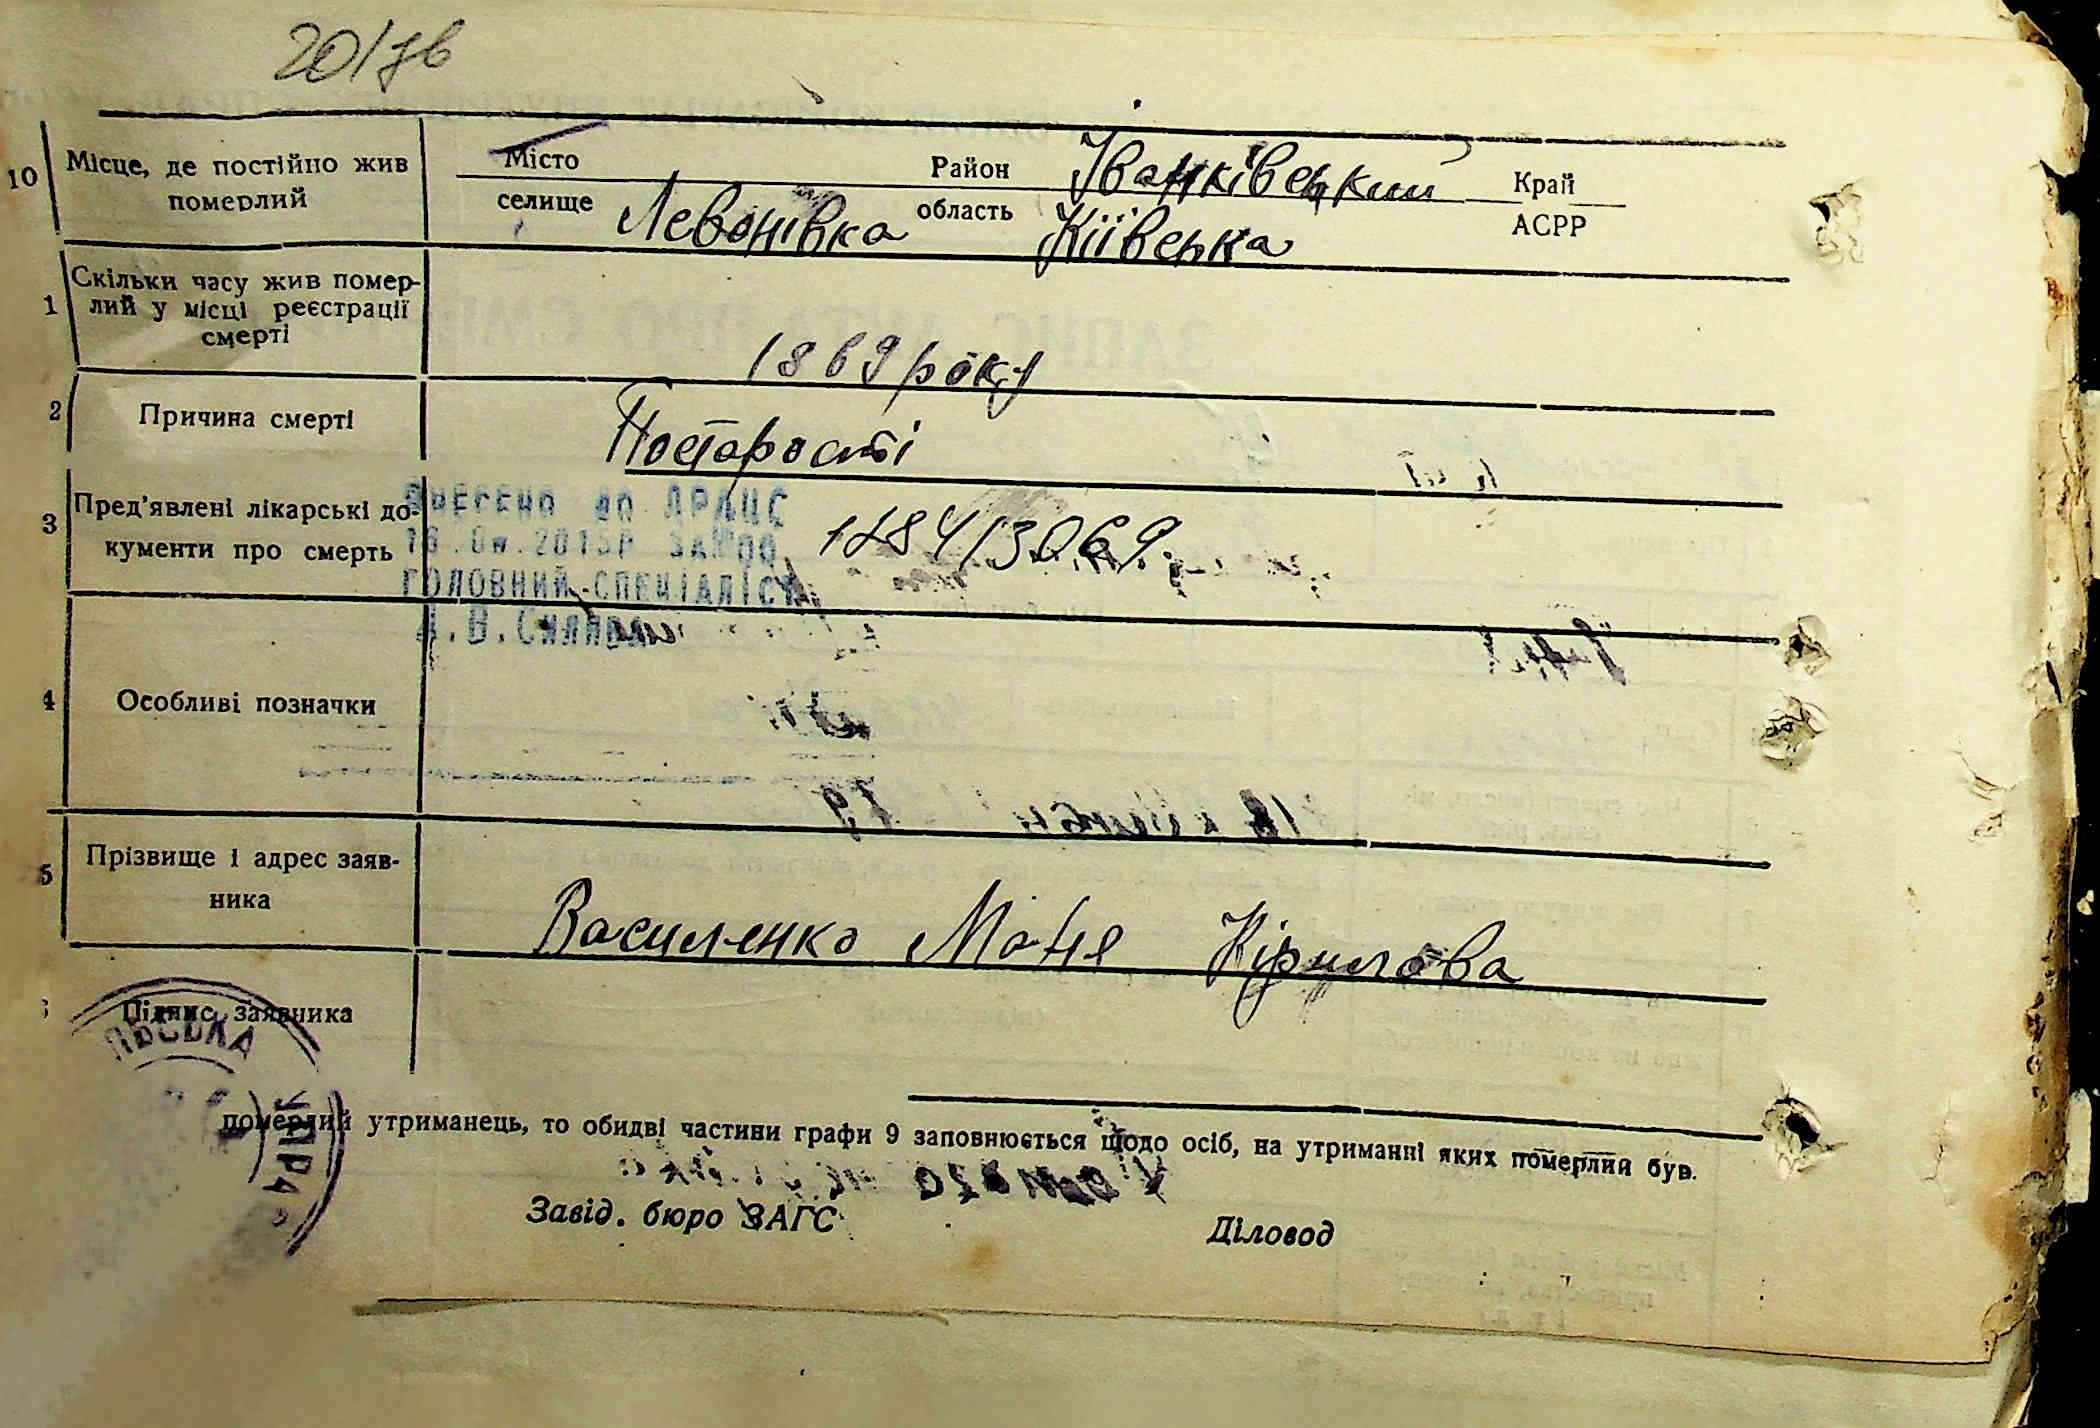 20/зв
10 Місце, де постійно жив
померлий
Місто
селище Левонівка
Район Іванківський
область Кіівська
Край
АСРР
1 Скільки часу жив помер-
лий у місці реєстрації
смерті
1869 року
2 Причина смерті
Постарості
3 Пред'явлені лікарські до-
кументи про смерть
ВНЕСЕНО ДО ДРАЦС
ГОЛОВНИЙ СПЕЦІАЛІСТ
4 Особливі позначки
5 Прізвище і адрес заяв-
ника
Василенко Маня Кірилова
Підпис заявника
ЛЬСЬКА
УПРА
померлий утриманець, то обидві частини графи 9 заповнюється щодо осіб, на утриманні яких померлий був.
Завід. бюро ЗАГС
Діловод